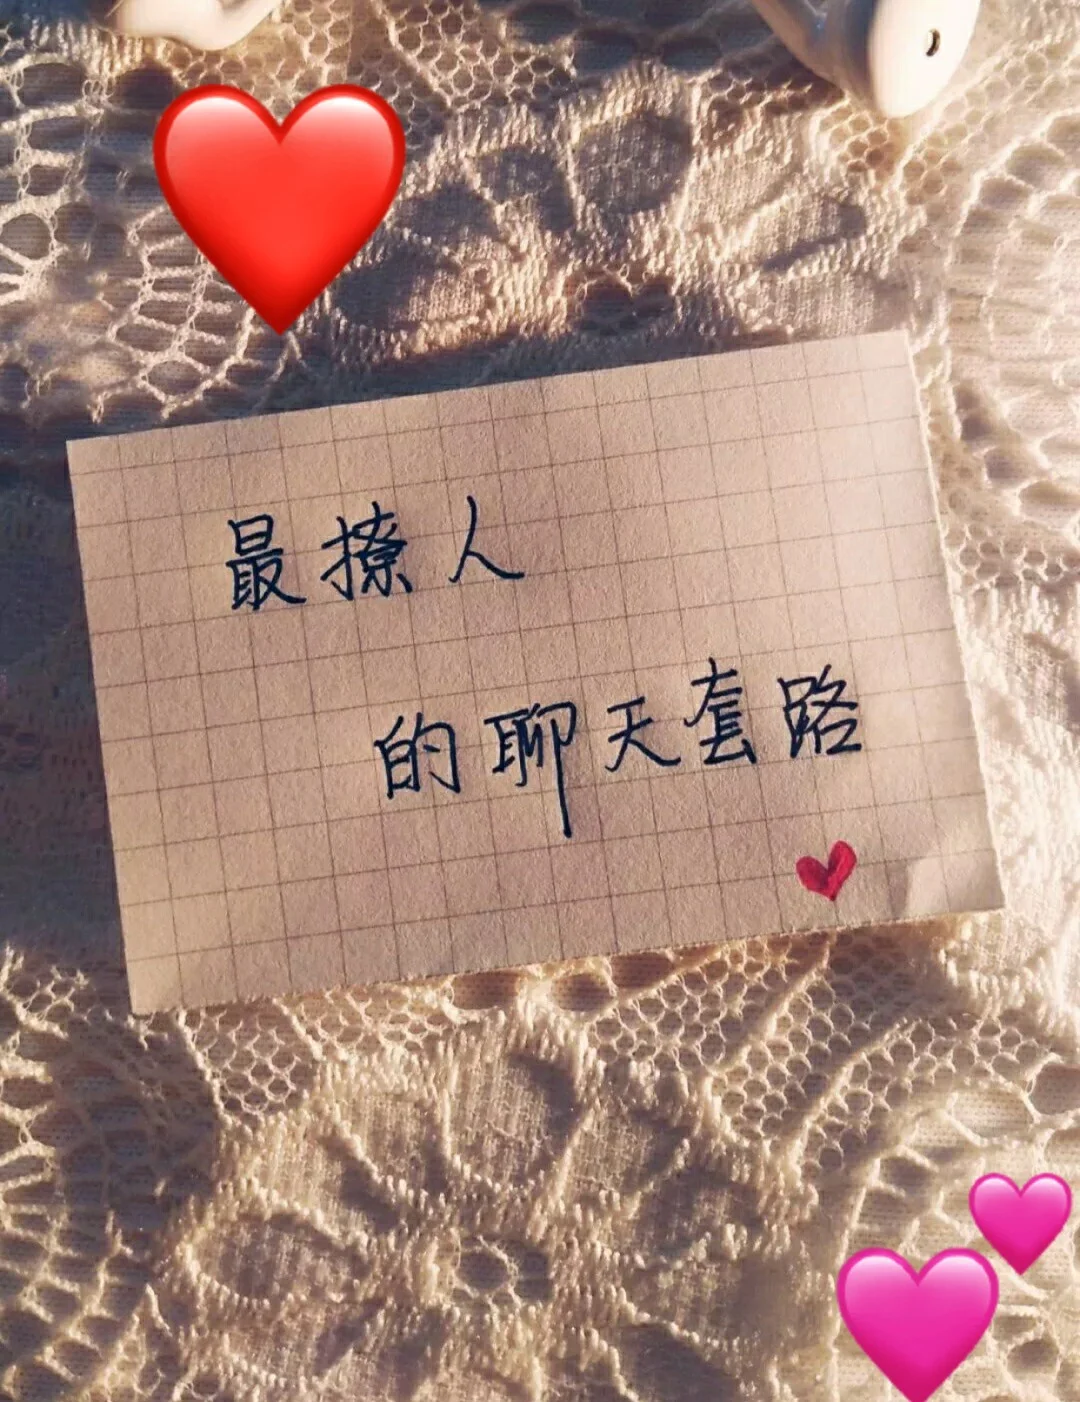 最撩人
的聊天套路